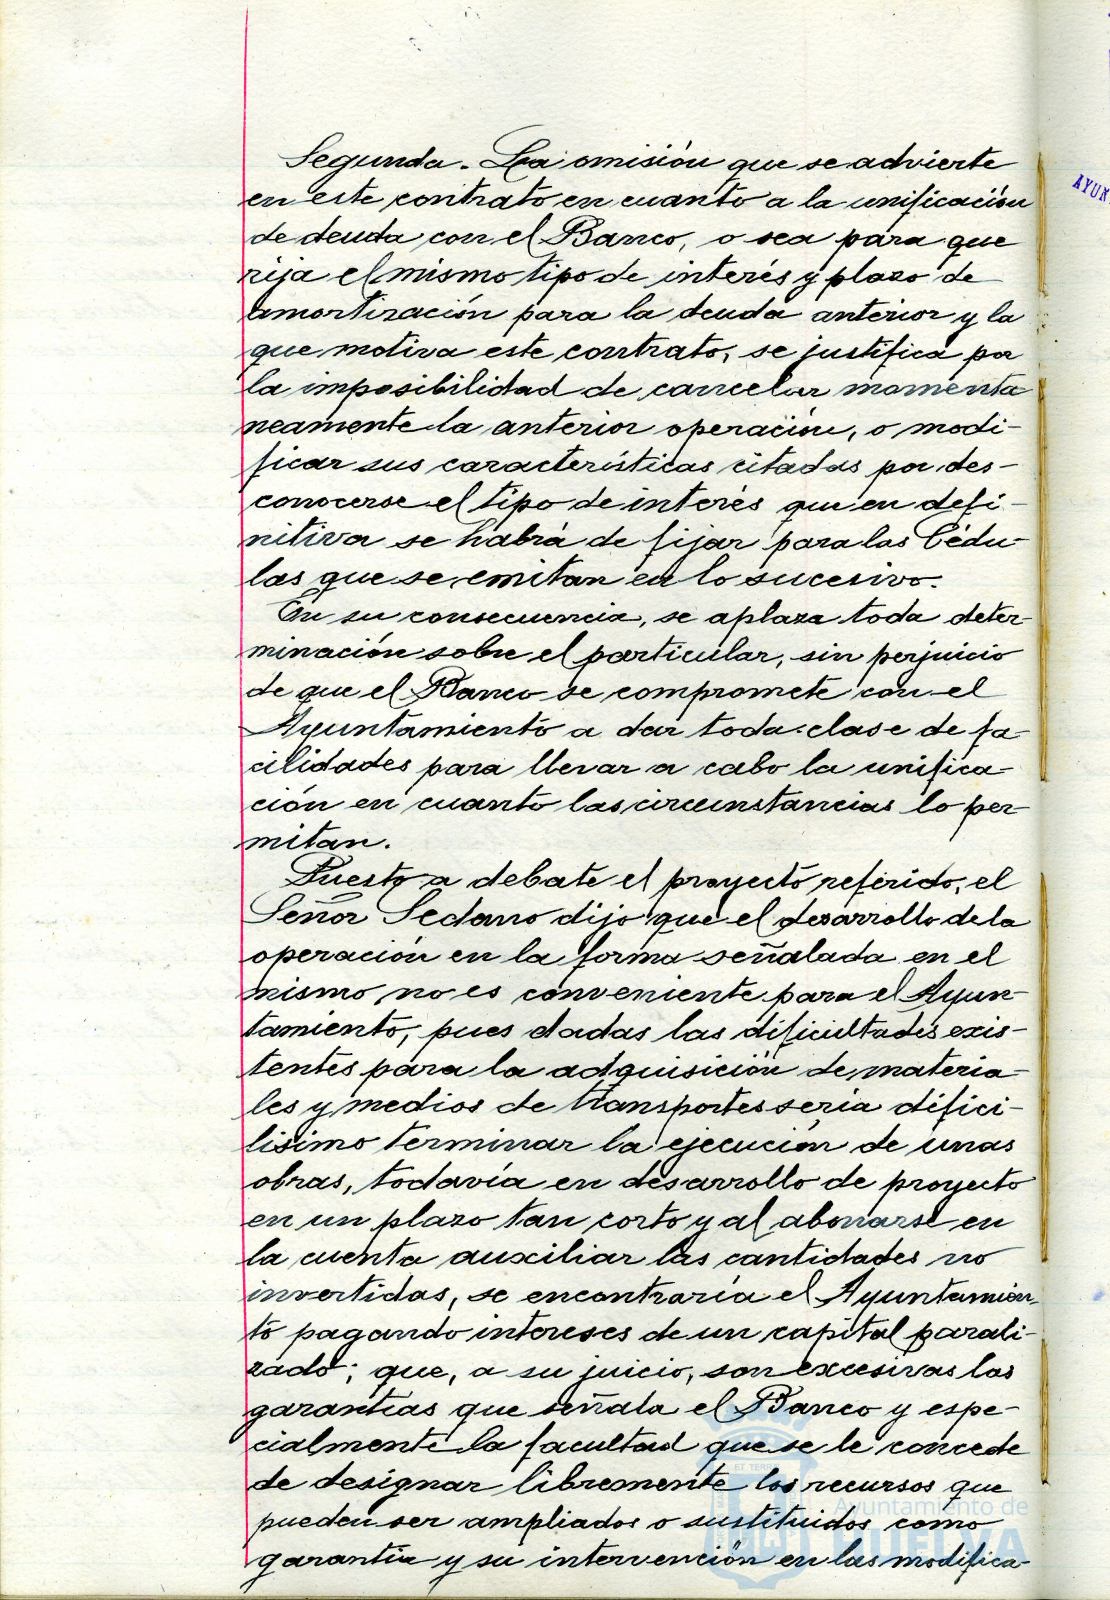 Segunda.- La omisión que se advierte
en este contrato en cuanto a la unificación
de deuda con el Banco, o sea para que
rija el mismo tipo de interés y plazo de
amortización para la deuda anterior y la
que motiva este contrato, se justifica por
la imposibilidad de cancelar momenta
neamente la anterior operación, o modi-
ficar sus características citadas por des-
conocerse el tipo de interés que en defi-
nitiva se habrá de fijar para las Cédu-
las que se emitan en lo sucesivo.
En su consecuencia, se aplaza toda deter-
minación sobre el particular, sin perjuicio
de que el Banco se compromete con el
Ayuntamiento a dar toda clase de fa-
cilidades para llevar a cabo la unifica-
ción en cuanto las circunstancias lo per-
mitan.
Puesto a debate el proyecto referido, el
Señor Sedano dijo que el desarrollo de la
operación en la forma señalada en el
mismo no es conveniente para el Ayun-
tamiento, pues dadas las dificultades exis-
tentes para la adquisición de materia-
les y medios de transportes seria difici-
lísimo terminar la ejecución de unas
obras, todavía en desarrollo de proyecto
en un plazo tan corto y al abonarse en
la cuenta auxiliar las cantidades no
invertidas, se encontraría el Ayuntamien-
to pagando intereses de un capital parali-
zado; que, a su juicio, son excesivas las
garantías que señala el Banco y espe-
cialmente la facultad que se le concede
de designar libremente los recursos que
pueden ser ampliados o sustituidos como
garantía y su intervención en las modifica-
AYUN
Ayuntamiento de
HUELVA